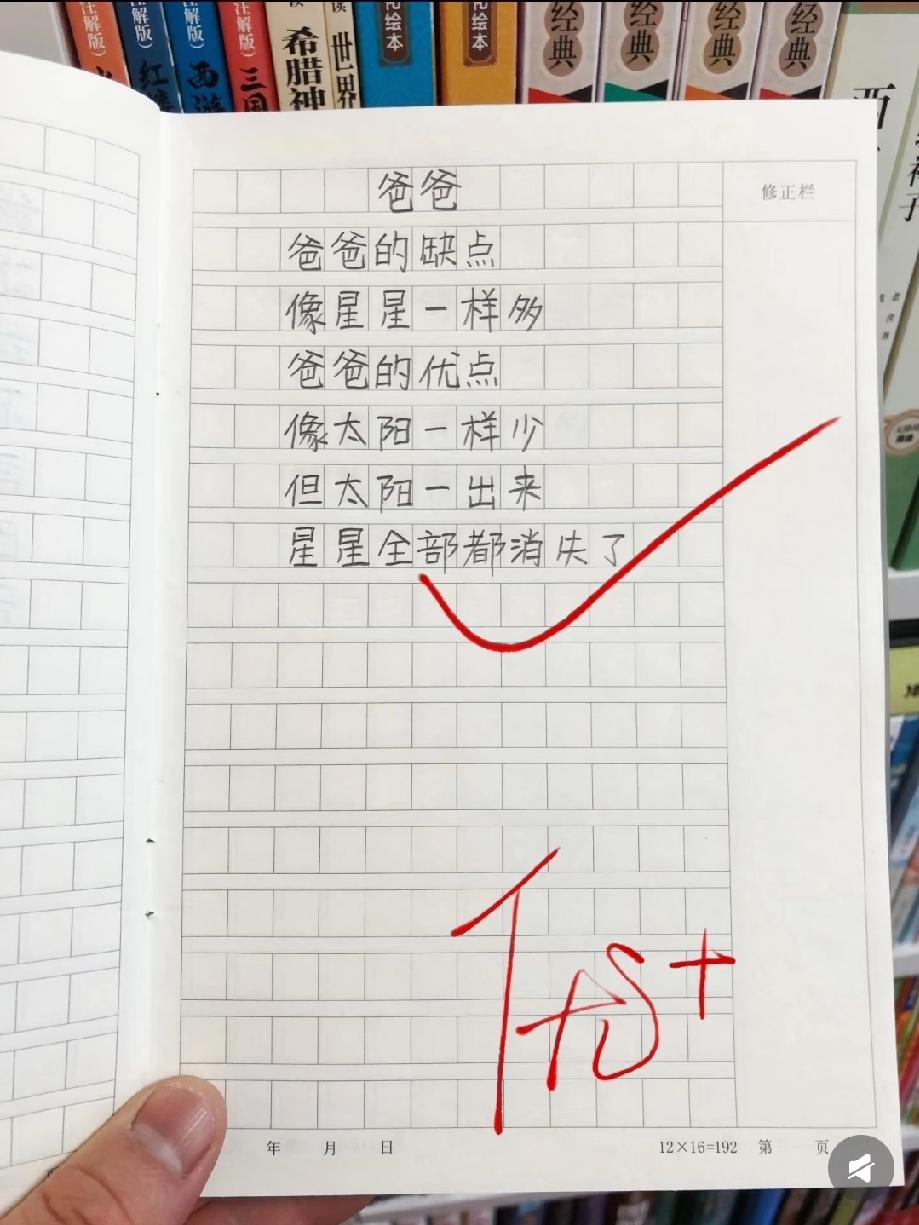 注解版)
注解版)
红
注解版)
西游
注解版)
三国
读
希腊神
世界
绘本
绘本
经典
经典
经典
经典
西
子
爸爸
修正栏
爸爸的缺点
像星星一样多
爸爸的优点
像太阳一样少
但太阳一出来
星星全部都消失了
优+
年 月 日
12×16=192 第 页